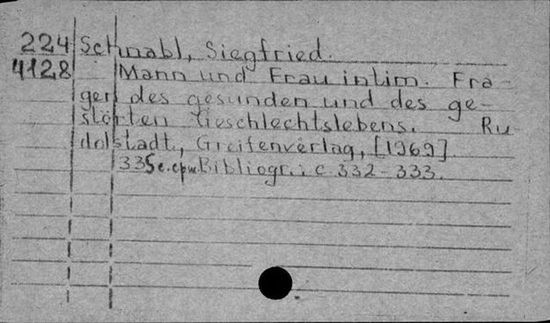 224 Schnabl, Siegfried.
4128 Mann und Frau intim. Fra-
gen des gesunden und des ge-
störten Geschlechtslebens. Ru-
dolstadt, Greifenverlag, [1969]
335 c. срис Bibliogr.: c. 332-333.